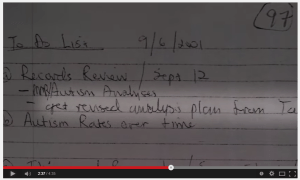 97
To Do List 9/6/2001
① Records Review / Sept 12
- Autism Analyses
- get revised analysis plan from
② Autism Rates over time
2:37 / 4:35